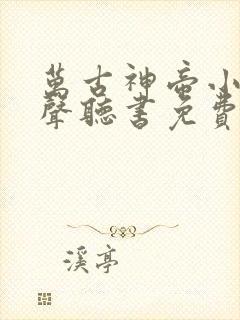 萬古神帝小
聲聽書免費
溪亭